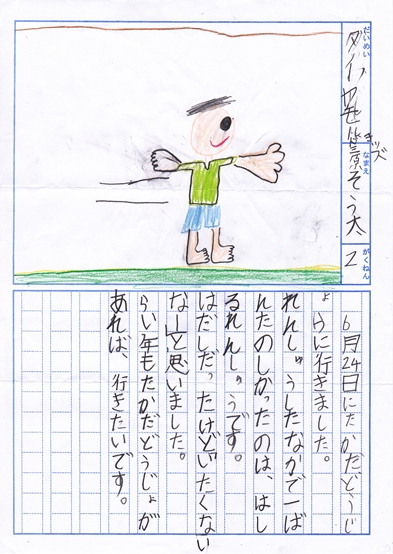 だいめい
キッズ
なまえ
そう太
がくねん
2
6月24日にたかだどうじ
ょうに行きました。
れんしゅうしたなかで一ば
んたのしかったのは、はし
るれんしゅうです。
はだしだったけどいたくない
なーと思いました。
らい年もたかだどうじょうが
あれば、行きたいです。